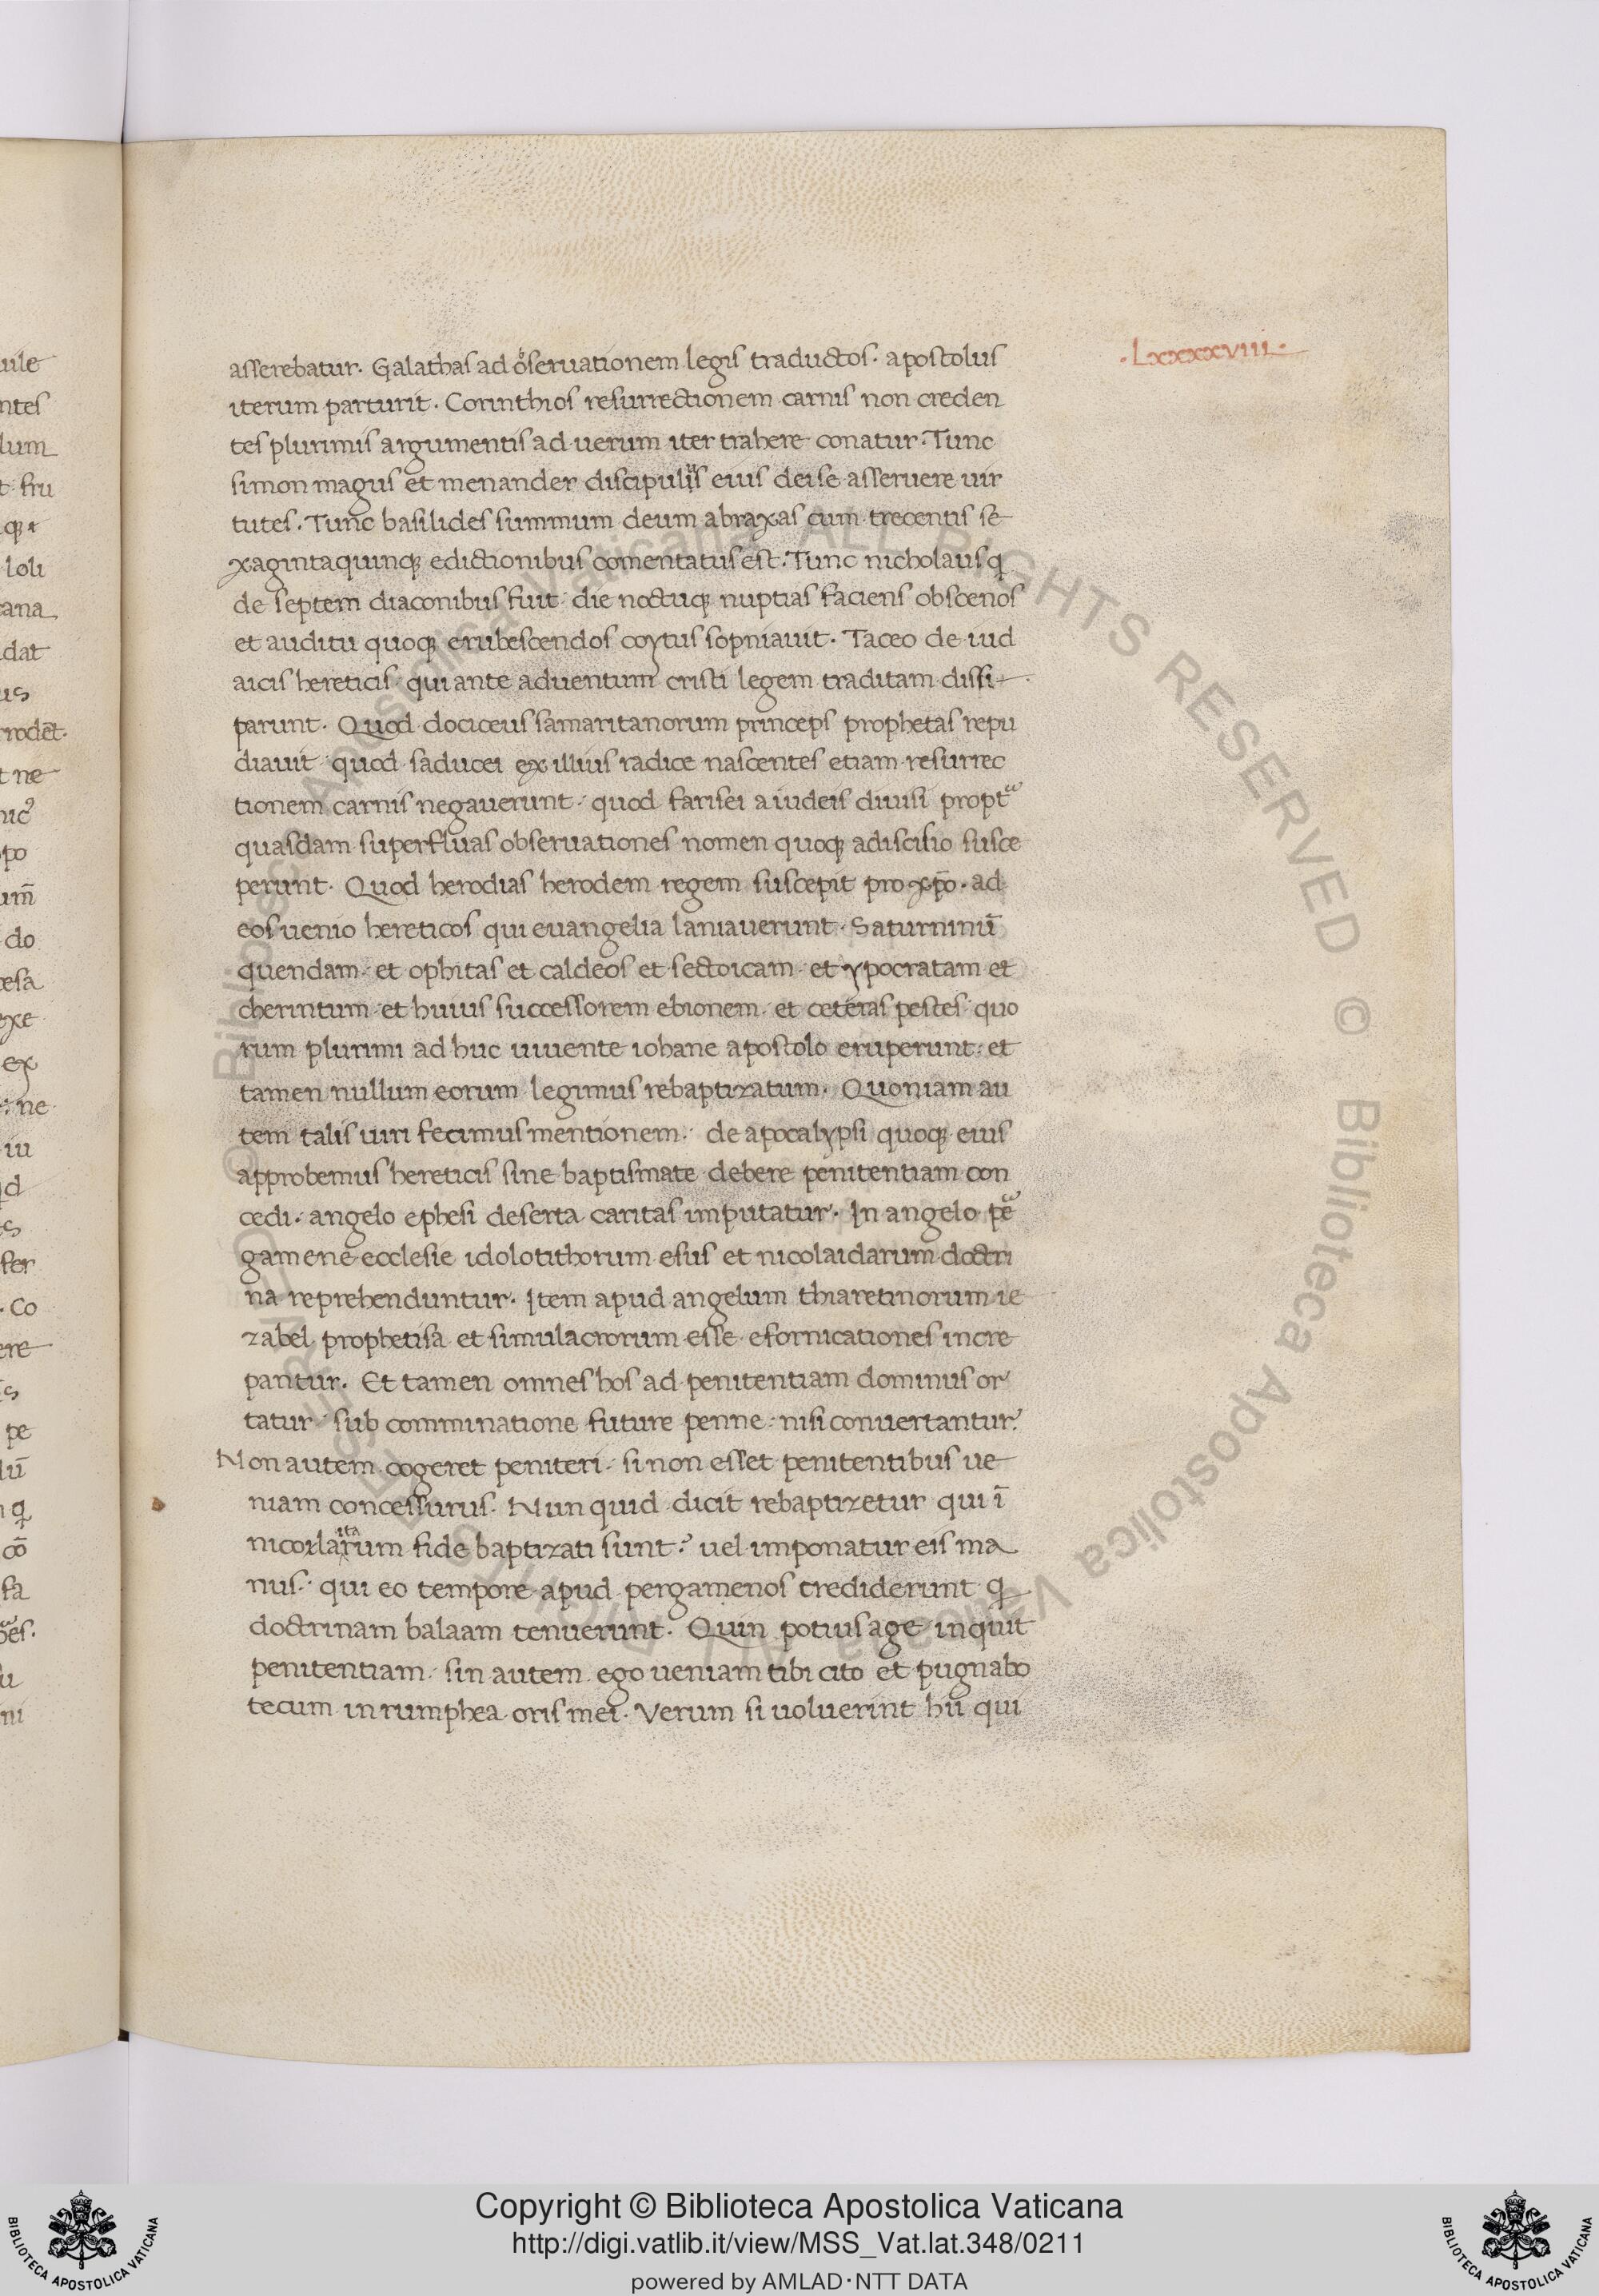 .Lxxxxviii.
asserebatur. Galathas ad oᵇseruationem legis traductos. apostolus
iterum parturit. Corinthios resurrectionem carnis non creden
tes plurimis argumentis ad uerum iter trahere conatur. Tunc
simon magus et menander discipuliᵘs eius dei se asseruere uir
tutes. Tunc basilides summum deum abraxas cum trecentis se
xagintaquinqꝫ edictionibus comentatus est. Tunc nicholaus q
de septem diaconibus fuit die noctuqꝫ nuptias faciens obscenos
et auditu quoqꝫ erubescendos coytus sopniauit. Taceo de iud
aicis hereticis qui ante aduentum cristi legem traditam dissi
parunt. Quod dociceus samaritanorum princeps prophetas repu
diauit quod saducei ex illius radice nascentes etiam resurrec
tionem carnis negauerunt. quod farisei a iudeis diuisi proptᷓ
quasdam superfluas obseruationes nomen quoqꝫ a discisio susce
perunt. Quod herodias herodem regem suscepit pro xp̄o. ad
eos uenio hereticos qui euangelia laniauerunt. Saturninū
quendam et ophitas et caldeos et sectoicam et ypocratam et
cherintum et huius successorem ebionem et ceteras pestes quo
rum plurimi ad huc uiuente iohane apostolo eruperunt. et
tamen nullum eorum legimus rebaptizatum. Quoniam au
tem talis uiri fecimus mentionem. de apocalypsi quoqꝫ eius
approbemus hereticis sine baptismate debere penitentiam con
cedi. angelo ephesi deserta caritas imputatur. In angelo peᷓ
gamene ecclesie idolotithorum esus et nicolaidarum doctri
na reprehenduntur. Item apud angelum thiaretinorum ie
zabel prophetisa et simulacrorum esse efornicationes incre
pantur. Et tamen omnes hos ad penitentiam dominus or
tatur sub comminatione future penne nisi conuertantur.
Non autem cogeret peniteri si non esset penitentibus ue
niam concessurus. Nunquid dicit rebaptizetur qui ī
nicoilaⁱᵗᵃrum fide baptizati sunt? uel imponatur eis ma
nus. qui eo tempore apud pergamenos crediderunt q
doctrinam balaam tenuerunt. Quin potius age inquit
penitentiam. sin autem ego ueniam tibi cito et pugnabo
tecum in rumphea oris mei. Verum si uoluerint hii qui
Copyright © Biblioteca Apostolica Vaticana
http://digi.vatlib.it/view/MSS_Vat.lat.348/0211
powered by AMLAD·NTT DATA